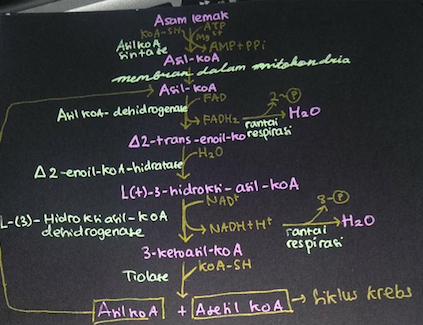 Asam lemak
KOA-SH ATP
Mg2+
Asil KOA
sintase
AMP+PPi
Asil-KOA
membran dalam mitokondria
Asil-KOA
FAD
Asil KOA-dehidrogenase
2~P
FADH2 rantai respirasi H2O
Δ2-trans-enoil-KO
H2O
Δ2-enoil-KOA-hidratase
L(+)-3-hidroksi-asil-KOA
NAD+
L-(3)-Hidroksi asil-KOA
dehidrogenase
3~P
NADH+H+ rantai respirasi H2O
3-ketoasil-KOA
KOA-SH
Tiolase
Asil KOA + Asetil KOA → Siklus Krebs